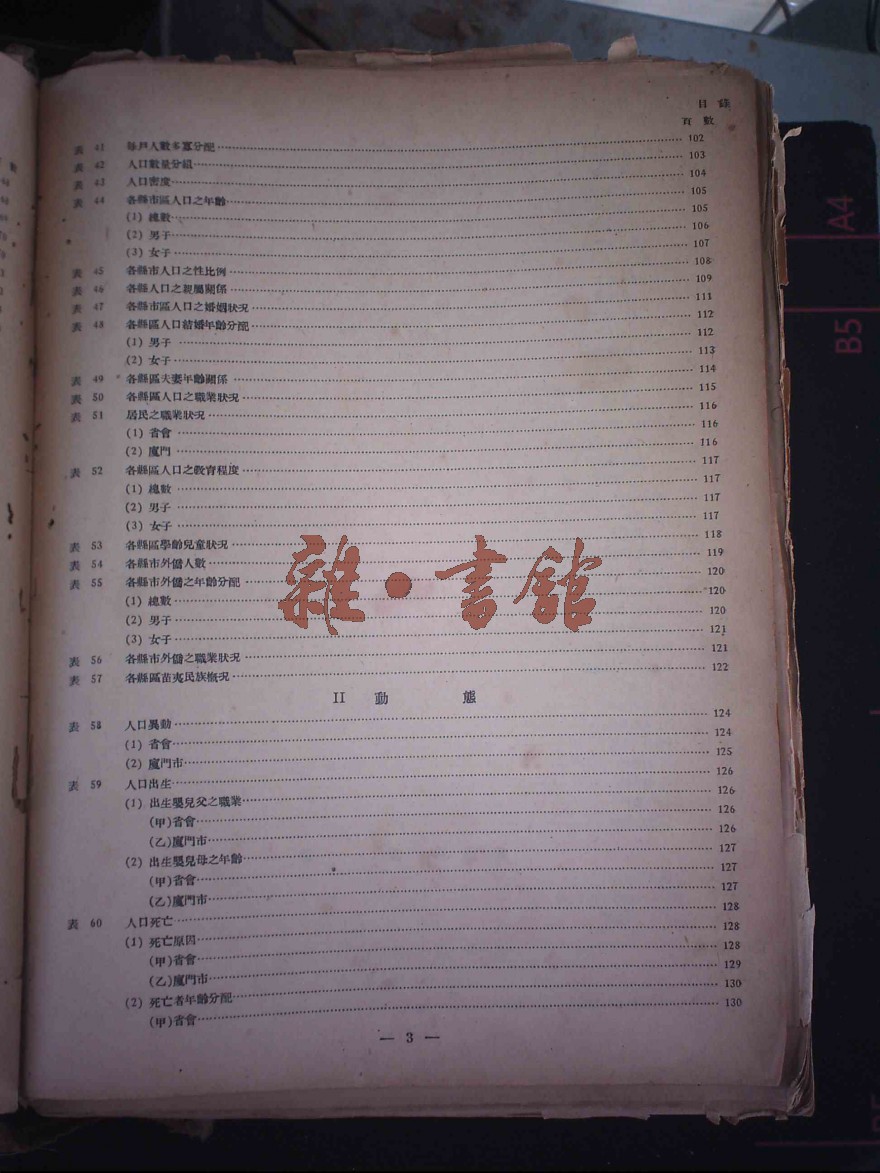 目錄
頁數
表 41 每戶人數多寡分配 102
表 42 人口數量分組 103
表 43 人口密度 104
表 44 各縣市區人口之年齡 105
(1) 總數 105
(2) 男子 106
(3) 女子 107
表 45 各縣市人口之性比例 108
表 46 各縣人口之親屬關係 109
表 47 各縣市區人口之婚姻狀況 111
表 48 各縣區人口結婚年齡分配 112
(1) 男子 112
(2) 女子 113
表 49 各縣區夫妻年齡關係 114
表 50 各縣區人口之職業狀況 115
表 51 居民之職業狀況 116
(1) 省會 116
(2) 廈門 116
表 52 各縣區人口之教育程度 117
(1) 總數 117
(2) 男子 117
(3) 女子 117
表 53 各縣區學齡兒童狀況 118
表 54 各縣市外僑人數 119
表 55 各縣市外僑之年齡分配 120
(1) 總數 120
(2) 男子 120
(3) 女子 121
表 56 各縣市外僑之職業狀況 121
表 57 各縣區苗夷民族概況 122
II 動 態
表 58 人口異動 124
(1) 省會 124
(2) 廈門市 125
表 59 人口出生 126
(1) 出生嬰兒父之職業 126
(甲)省會 126
(乙)廈門市 126
(2) 出生嬰兒母之年齡 127
(甲)省會 127
(乙)廈門市 127
表 60 人口死亡 128
(1) 死亡原因 128
(甲)省會 128
(乙)廈門市 129
(2) 死亡者年齡分配 130
(甲)省會 130
— 3 —
雜·書館
A4
B5